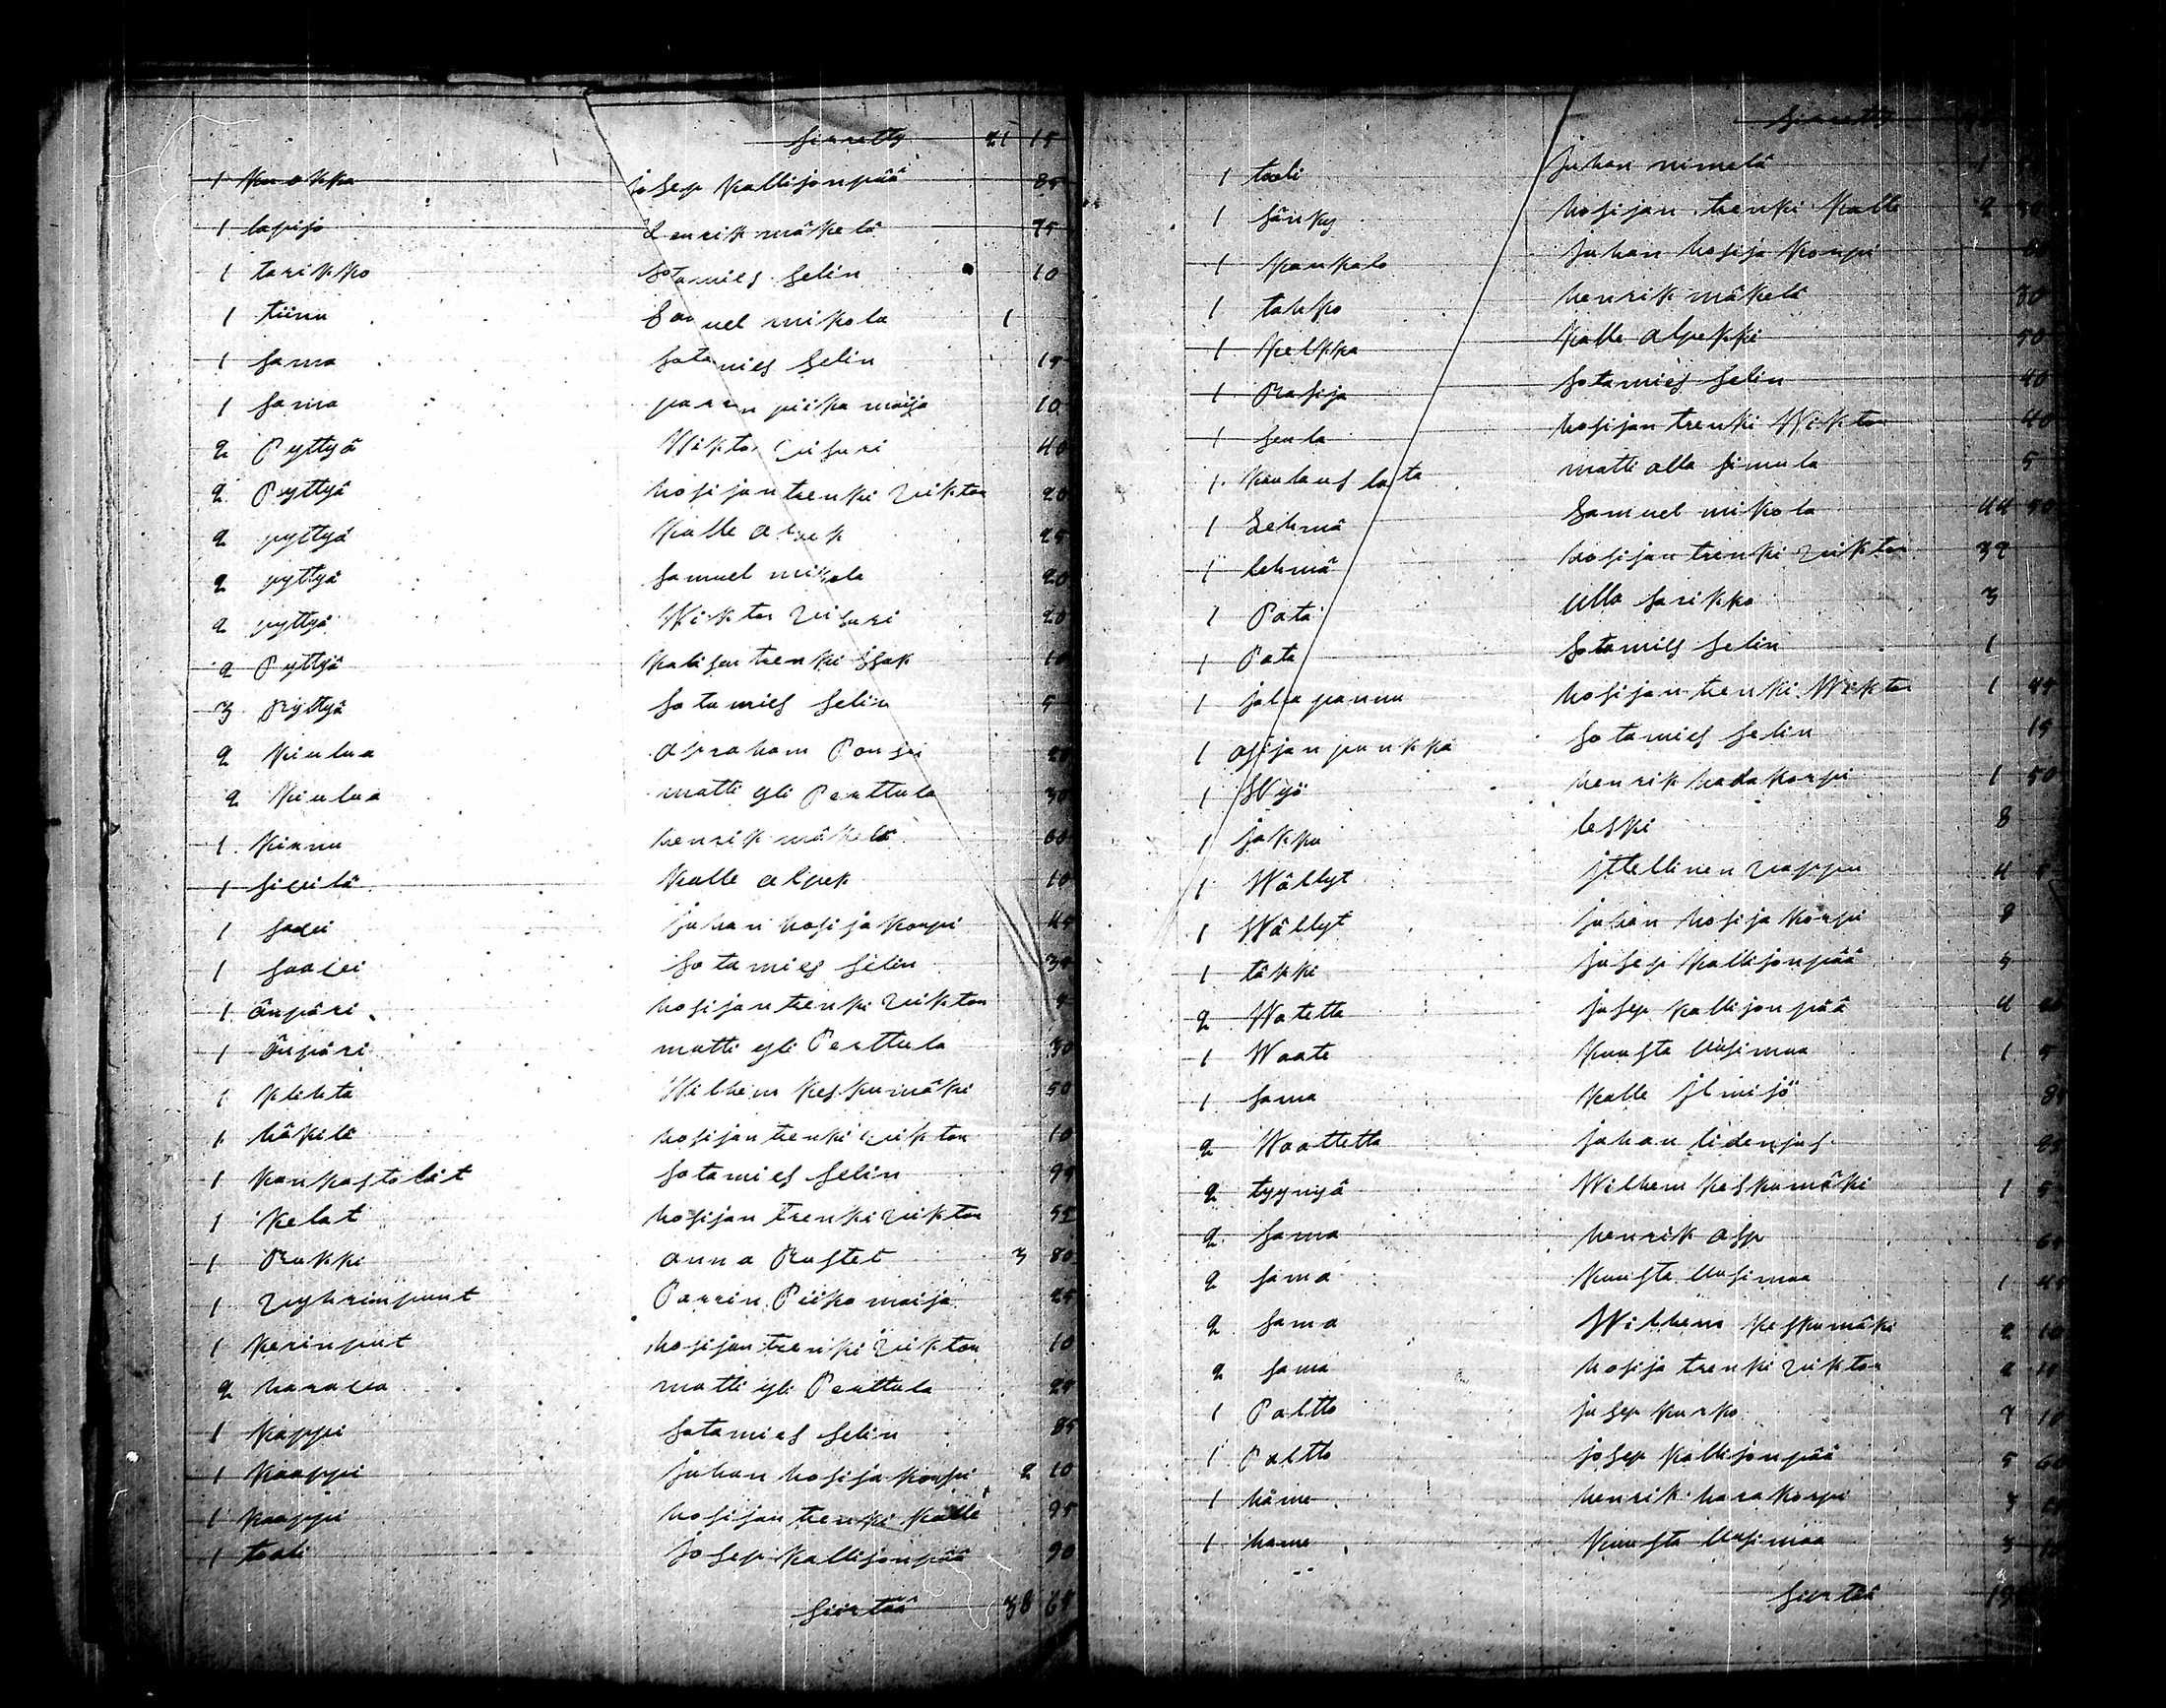 siirretty 21 15
1 kuokka josep kallijonpää 85
1 lapijo Henrik mäkelä 75
1 tarikko sotamies selin 10
1 tiinu Samuel mikola 1
1 sama sotamies selin 15
1 sama parrin piika maija 10
2 Pyttyä Wiktor viisuri 40
2 Pyttyä hosijan trenki viktor 20
2 pyttyä kalle alpek 25
2 pyttyä samuel mikola 20
2 pyttyä Wiktor viisuri 20
2 Pyttyä kalisen trenki jsak 10
3 Pyttyä sotamies selin 5
2 kiulua apraham Ponsi 20
2 kiulua matti yli Perttula 30
1 kirnu henrik mäkelä 60
1 siivilä kalle alpek 10
1 saavi juhan hosijakorpi 45
1 saavi sotamies selin 35
1 änpäri hosijan trenki viktor 5
1 änpäri matti yli Perttula 30
1 klihta Wilhem keskumäki 50
1 häkilä hosijan trenki viktor 10
1 kankastolit sotamies selin 95
1 kelat hosijan trenki viktor 55
1 Rukki anna Rustet 3 80
1 vyyhrinpuut Parrin Piika maija 25
1 kerinput hosijan trenki viktor 10
2 harava matti yli Perttula 25
1 kappi sotamies selin 85
1 kaappi juhan hosijakorpi 2 10
1 kaappi hosijan trenki kalle 95
1 tooli josep kallijonpää 90
siirtää 38 65
siirretty
1 tooli juhan nimelä 1
1 sänky hosijan trenki kalle 2
1 kaukalo juhan hosijakorpi
1 tahko henrik mäkelä 30
1 kelkka kalle alpekki 50
1 Rasija sotamies selin 40
1 seula hosijan trenki Wiktor 40
1 kaulaus lauta matti alla simula 5
1 Lehmä Samuel mikola 44 50
1 lehmä hosijan trenki viktor 32
1 Pata ulla sarikko 3
1 Pata sotamies selin 1
1 jalca pannu hosijan trenki Wiktor 1 45
1 asijan punkka sotamies selin 15
1 Wyö henrik hadakorpi 1 50
1 jakku leski 8
1 Wällyt jttellinen vappu 4
1 Wällyt juhan hosijakorpi 9
1 täkki josep kallijonpää 5
2 Watetta josep kallijonpää 4
1 Waate kuusta uusimaa 1 5
1 sama kalle jlmijö
2 Waattetta juhan lidenjus
2 tyynyä Wilhem keskumäki 1 5
2 sama henrik alp
2 sama kuusta uusimaa 1 45
2 sama Wilhem keskumäki 2 10
2 sama hosija trenki viktor 2
1 Paltto josep kurko 7 10
1 Paltto josep kallijonpää 5 60
1 häme henrik harakorpi 3
1 hame kuusta uusimaa 3
siirtää